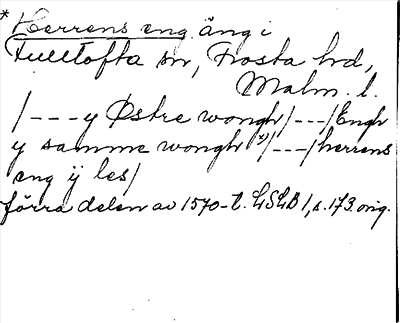 * Herrens eng äng i
Fulltofta sn, Frosta hd,
Malm. l.
/---y Østre wongh/---/Engh
y samme wongh x)/---/herrens
eng ÿ les/
förra delen av 1570-t. LSLB 1, s. 173. orig.